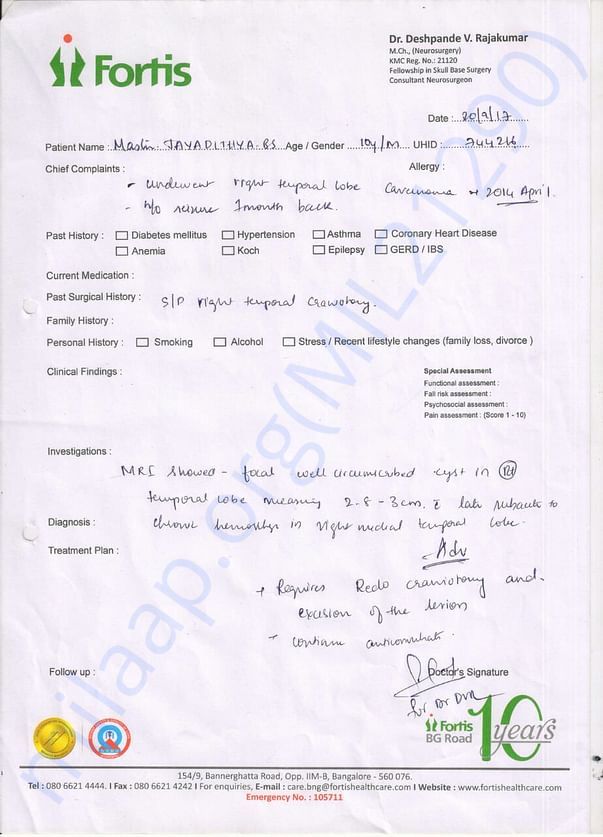 Fortis
Dr. Deshpande V. Rajakumar
M.Ch., (Neurosurgery)
KMC Reg. No.: 21120
Fellowship in Skull Base Surgery
Consultant Neurosurgeon
Date : 20/9/17
Patient Name : Master. JAYADITHYA. BS Age / Gender 10y/M UHID : 744216
Chief Complaints : Allergy :
- underwent right temporal lobe 2014 April.
- h/o seizure 1 month back.
Past History : Diabetes mellitus Hypertension Asthma Coronary Heart Disease
Anemia Koch Epilepsy GERD / IBS
Current Medication :
Past Surgical History : S/P right temporal craniotomy.
Family History :
Personal History : Smoking Alcohol Stress / Recent lifestyle changes (family loss, divorce )
Clinical Findings :
Special Assessment
Functional assessment :
Fall risk assessment :
Psychosocial assessment :
Pain assessment : (Score 1 - 10)
Investigations :
MRI showed - focal well circumscribed cyst in Rt
temporal lobe measuring 2.8 - 3cm. c̄ late subacute to
Diagnosis : chronic hemorrhage in right medial temporal lobe.
Treatment Plan : Adv
Requires Redo craniotomy and
excision of the lesion
- continue anticonvulsants.
Follow up : Doctor's Signature
for Dr DVR
Fortis
BG Road
10 years
154/9, Bannerghatta Road, Opp. IIM-B, Bangalore - 560 076.
Tel : 080 6621 4444. I Fax : 080 6621 4242 I For enquiries, E-mail : care.bng@fortishealthcare.com I Website : www.fortishealthcare.com
Emergency No. : 105711
milaap.org(MIL21290)